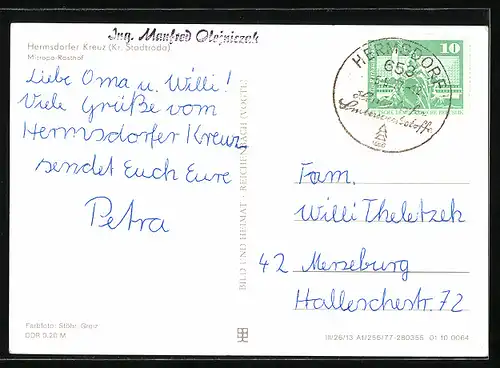 Ing. Manfred Olejniczak
Hermsdorfer Kreuz (Kr. Stadtroda)
Mitropa-Rasthof
Liebe Oma u. Willi!
Viele Grüße vom
Hermsdorfer Kreuz,
sendet Euch Eure
Petra
BILD UND HEIMAT · REICHENBACH (VOGTL)
10
HERMSDORF
653
Fam.
Willi Theletzek
42 Merseburg
Hallesche str. 72
Farbfoto:
DDR 0,20 M
III/26/13 A1/255/77-280355 01 10 0064